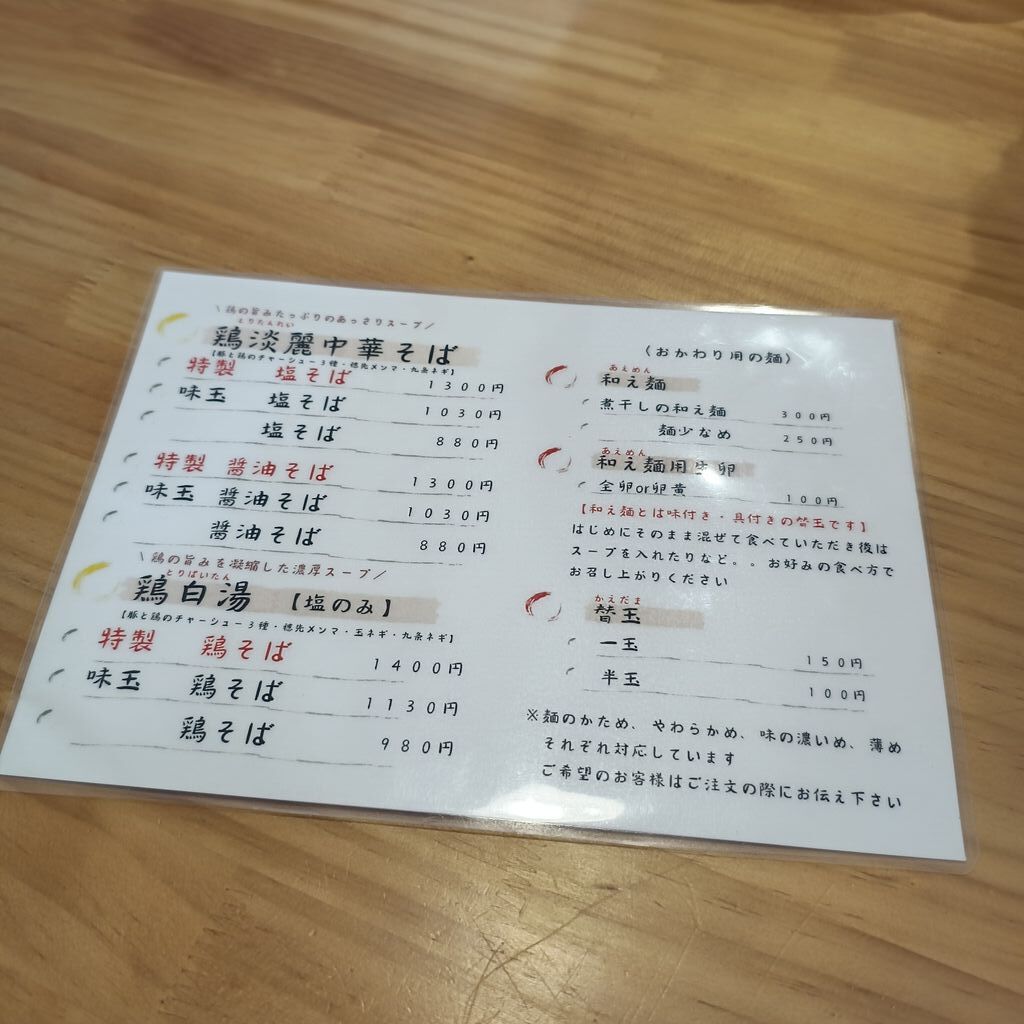 \ 鶏の旨みたっぷりのあっさりスープ /
とりたんれい
鶏淡麗中華そば
【豚と鶏のチャーシュー3種・穂先メンマ・九条ネギ】
特製 塩そば 1300円
味玉 塩そば 1030円
塩そば 880円
特製 醤油そば 1300円
味玉 醤油そば 1030円
醤油そば 880円
\ 鶏の旨みを凝縮した濃厚スープ /
とりぱいたん
鶏白湯 【塩のみ】
【豚と鶏のチャーシュー3種・穂先メンマ・玉ネギ・九条ネギ】
特製 鶏そば 1400円
味玉 鶏そば 1130円
鶏そば 980円
（おかわり用の麺）
あえめん
和え麺
煮干しの和え麺 300円
麺少なめ 250円
あえめん
和え麺用生卵
全卵or卵黄 100円
【和え麺とは味付き・具付きの替玉です】
はじめにそのまま混ぜて食べていただき後は
スープを入れたりなど。。お好みの食べ方で
お召し上がりください
かえだま
替玉
一玉 150円
半玉 100円
※麺のかため、やわらかめ、味の濃いめ、薄め
それぞれ対応しています
ご希望のお客様はご注文の際にお伝え下さい